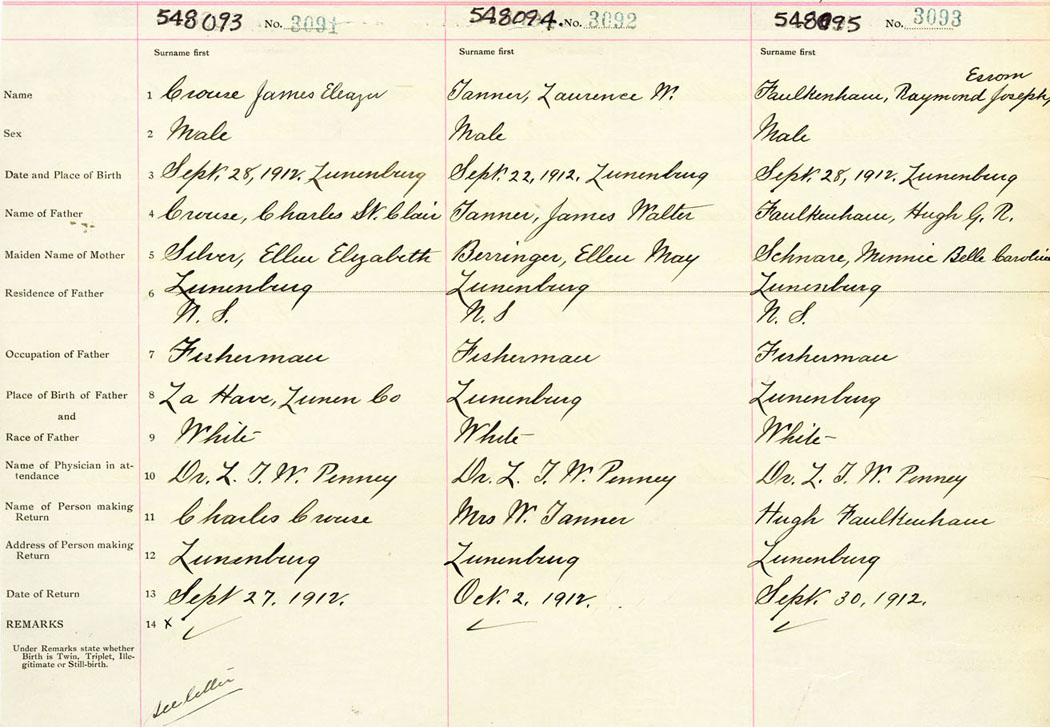 548093 No. 3091 548094. No. 3092 548095 No. 3093
Surname first Surname first Surname first
Essom
Name 1 Crouse James Eleazer Tanner, Laurence W. Faulkenham, Raymond Joseph,
Sex 2 Male Male Male
Date and Place of Birth 3 Sept. 28, 1912. Lunenburg Sept. 22, 1912. Lunenburg Sept. 28, 1912. Lunenburg
Name of Father 4 Crouse, Charles St. Clair Tanner, James Walter Faulkenham, Hugh G. R.
Maiden Name of Mother 5 Silver, Ellen Elizabeth Berringer, Ellen May Schnare, Minnie Belle Caroline
Residence of Father 6 Lunenburg Lunenburg Lunenburg
N. S. N. S N. S.
Occupation of Father 7 Fisherman Fisherman Fisherman
Place of Birth of Father 8 La Have, Lunen Co Lunenburg Lunenburg
and
Race of Father 9 White White White
Name of Physician in at-
tendance 10 Dr. L. T. W. Penney Dr. L. T. W. Penney Dr. L. T. W. Penney
Name of Person making
Return 11 Charles Crouse Mrs W. Tanner Hugh Faulkenham
Address of Person making
Return 12 Lunenburg Lunenburg Lunenburg
Date of Return 13 Sept 27. 1912. Oct. 2. 1912. Sept. 30, 1912.
REMARKS 14 x
Under Remarks state whether
Birth is Twin, Triplet, Ille-
gitimate or Still-birth.
see letter